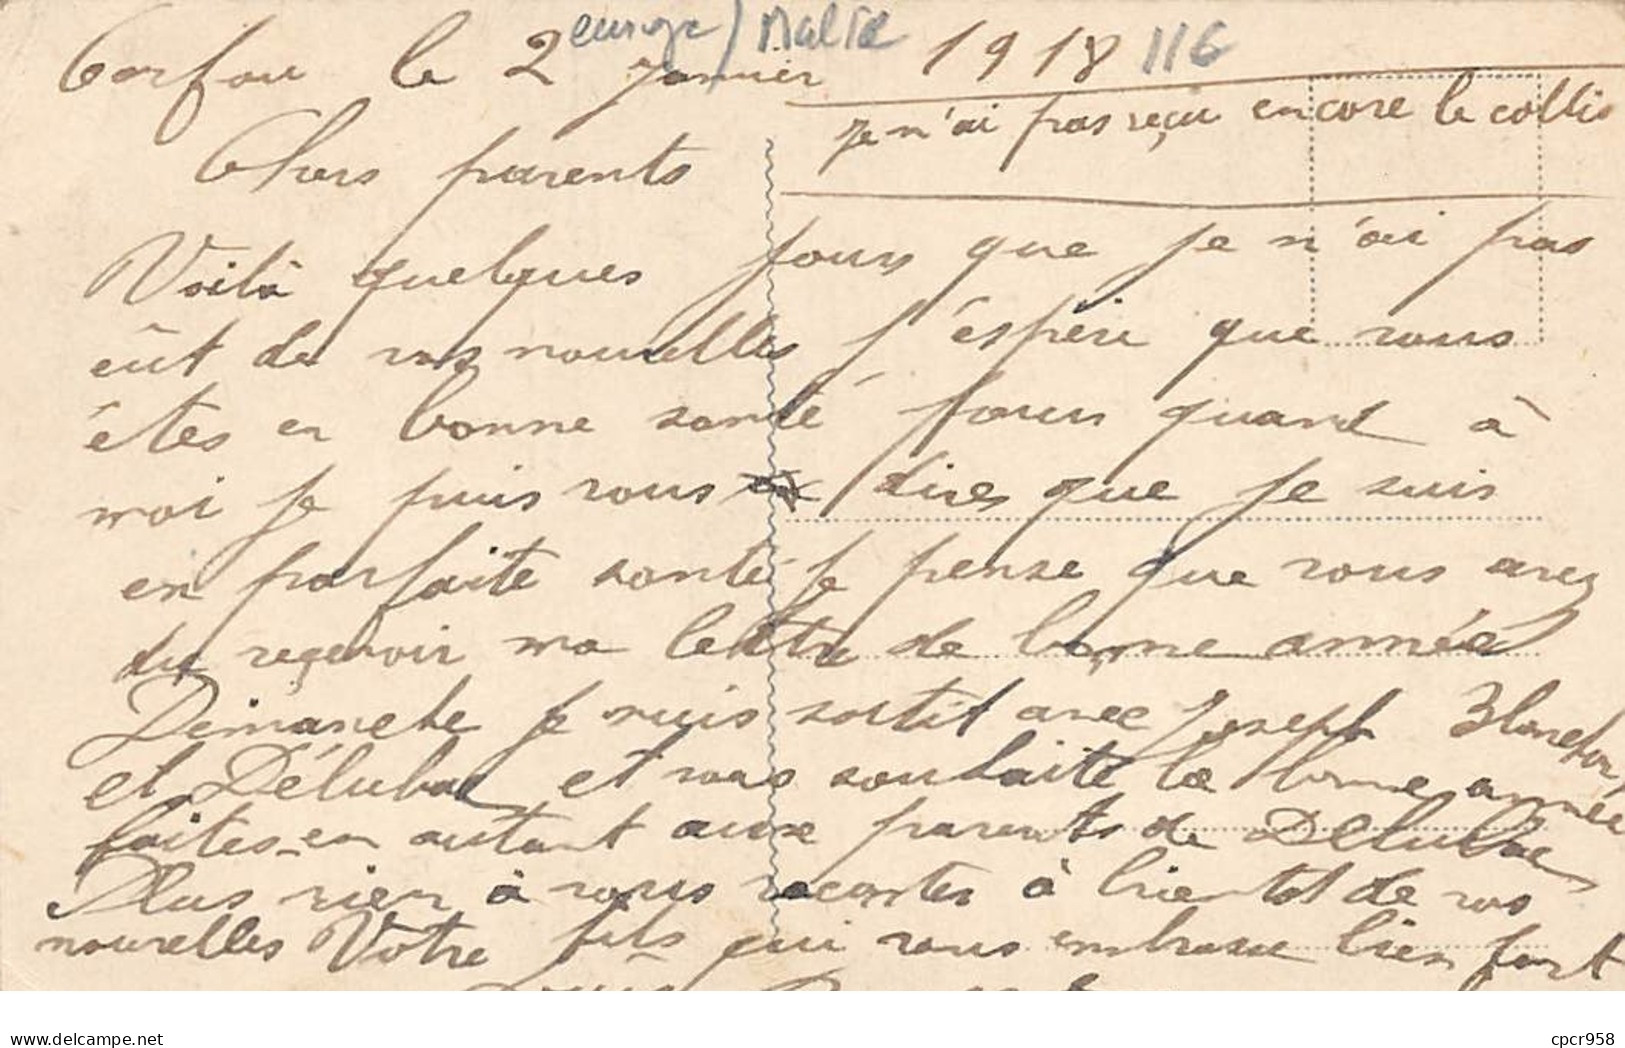 Corfou le 2 Janvier 1918
europe / Malte 116
Je n'ai pas reçu encore le collis
Chers parents
Voilà quelques jours que je n'ai pas
eût de vos nouvelles j'espère que vous
êtes en bonne santé pour quand à
moi je puis vous dires que je suis
en parfaite santé je pense que vous avez
du reçevoir ma lettre de bonne année
Dimanche je suis sortit avec Joseph Blanchon
et Délubac et vous souhaite la bonne année
faites-en autant aux parents de Délubac
Plus rien à vous racontes à bientot de vos
nouvelles Votre fils qui vous embrasse bien fort
Louis
cpcr958